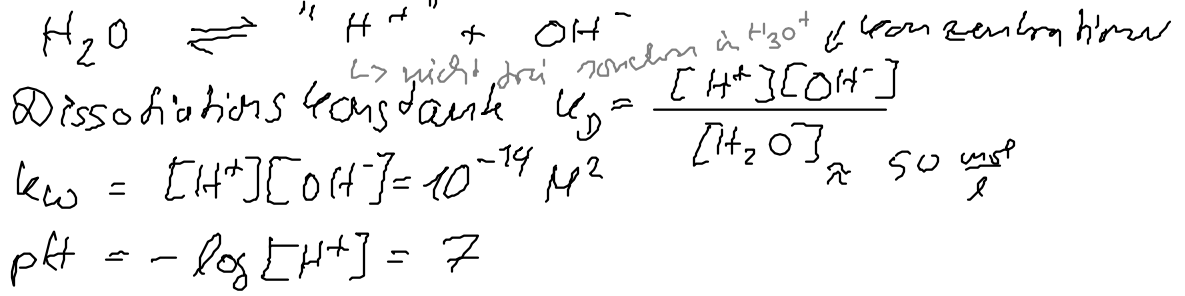 H₂O ⇌ "H⁺" + OH⁻
↳ nicht frei sondern in H₃O⁺ ↓ Konzentrationen
Dissoziationskonstante K_D = [H⁺][OH⁻] / [H₂O] ≈ 50 mol/l
K_W = [H⁺][OH⁻] = 10⁻¹⁴ M²
pH = - log [H⁺] = 7